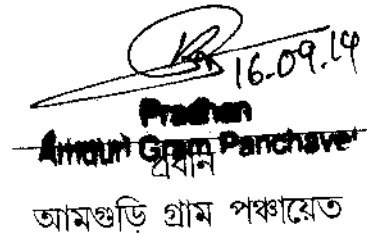 16.09.14
Pradhan
Amguri Gram Panchayet
প্রধান
আমগুড়ি গ্রাম পঞ্চায়েত